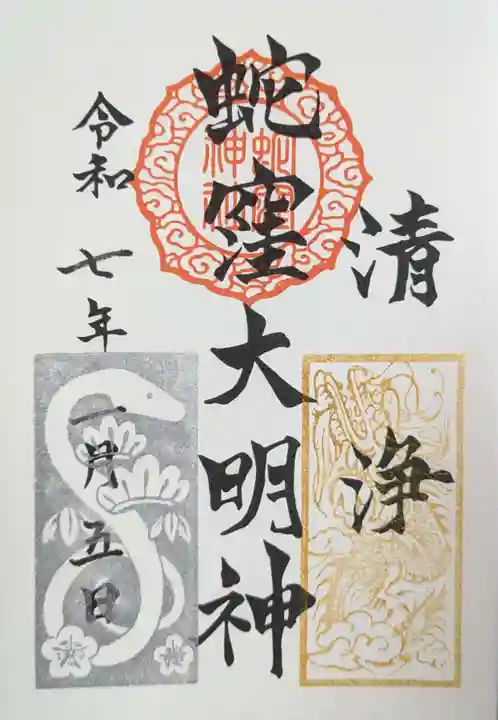 清浄
蛇窪大明神
蛇窪神社
令和七年一月五日